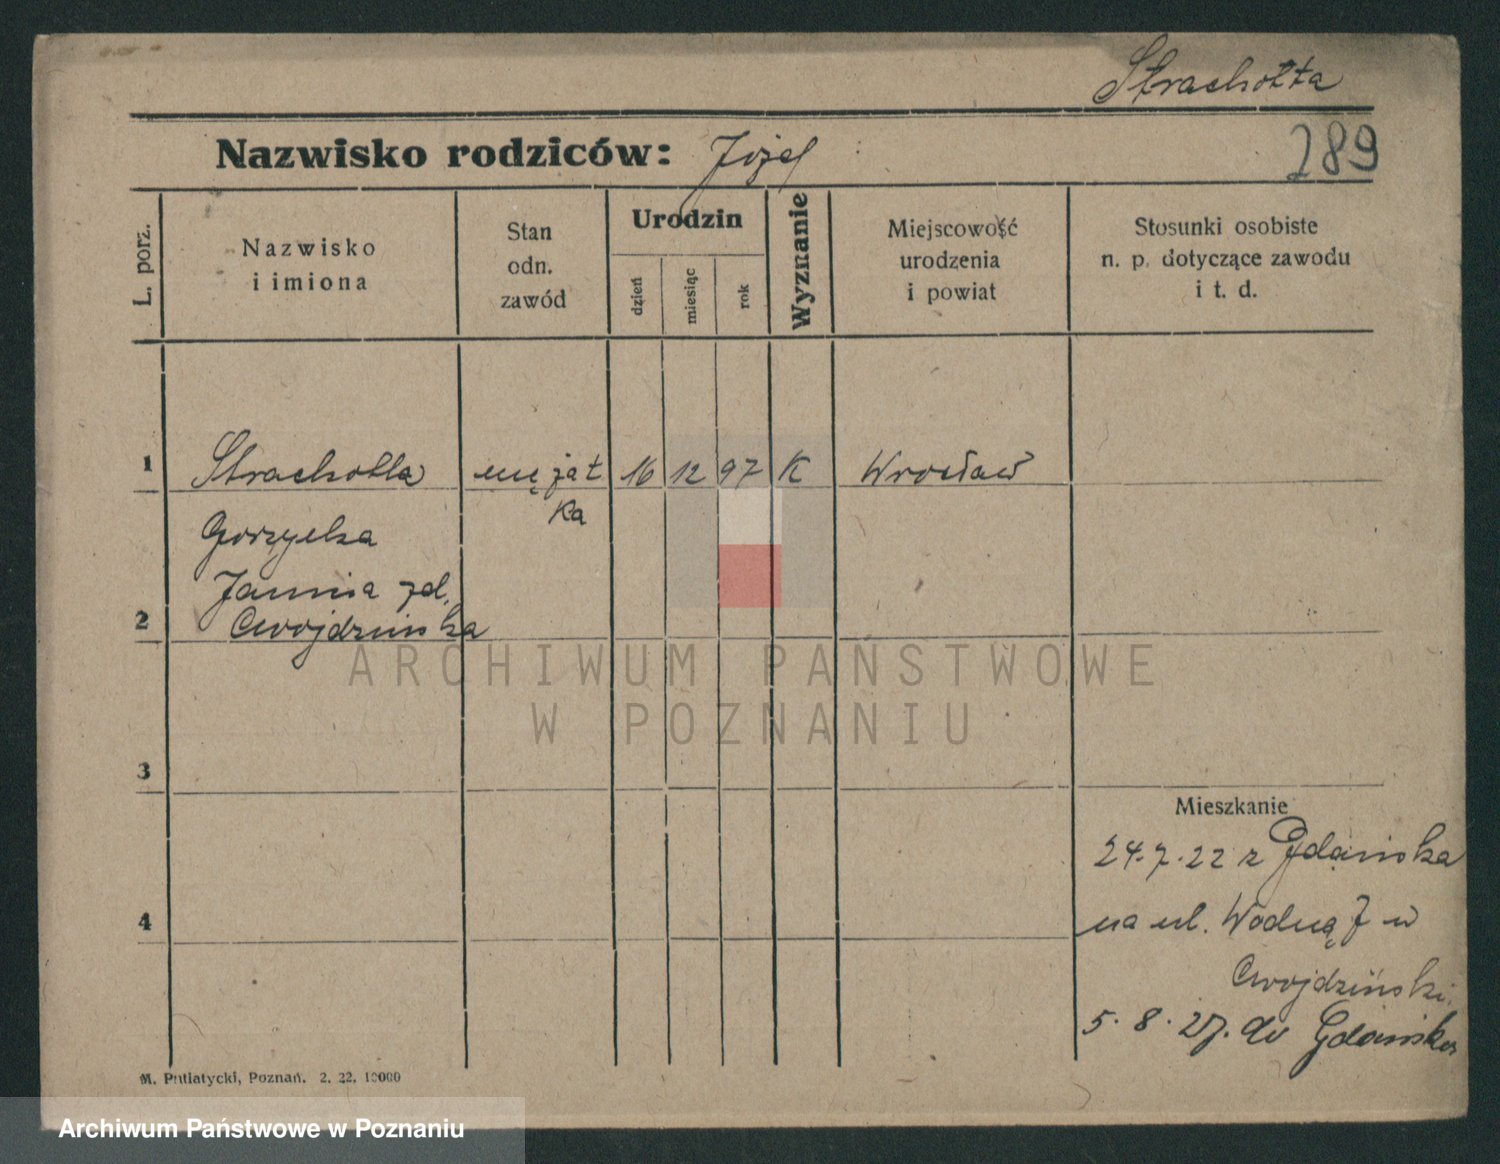 Strachotta
Nazwisko rodziców: Józef
289
L. porz.
Nazwisko
i imiona
Stan
odn.
zawód
Urodzin
dzień
miesiąc
rok
Wyznanie
Miejscowość
urodzenia
i powiat
Stosunki osobiste
n. p. dotyczące zawodu
i t. d.
1 Strachotta mężat 16 12 97 K Wrocław
ka
Gorzyelka
Janina zd.
2 Cwojdzińska
ARCHIWUM PAŃSTWOWE
W POZNANIU
3
Mieszkanie
24.7.22 z Gdańska
4
na ul. Wodną 7 u
Cwojdziński.
5.8.27. do Gdańska
M. Putiatycki, Poznań. 2. 22. 10000
Archiwum Państwowe w Poznaniu